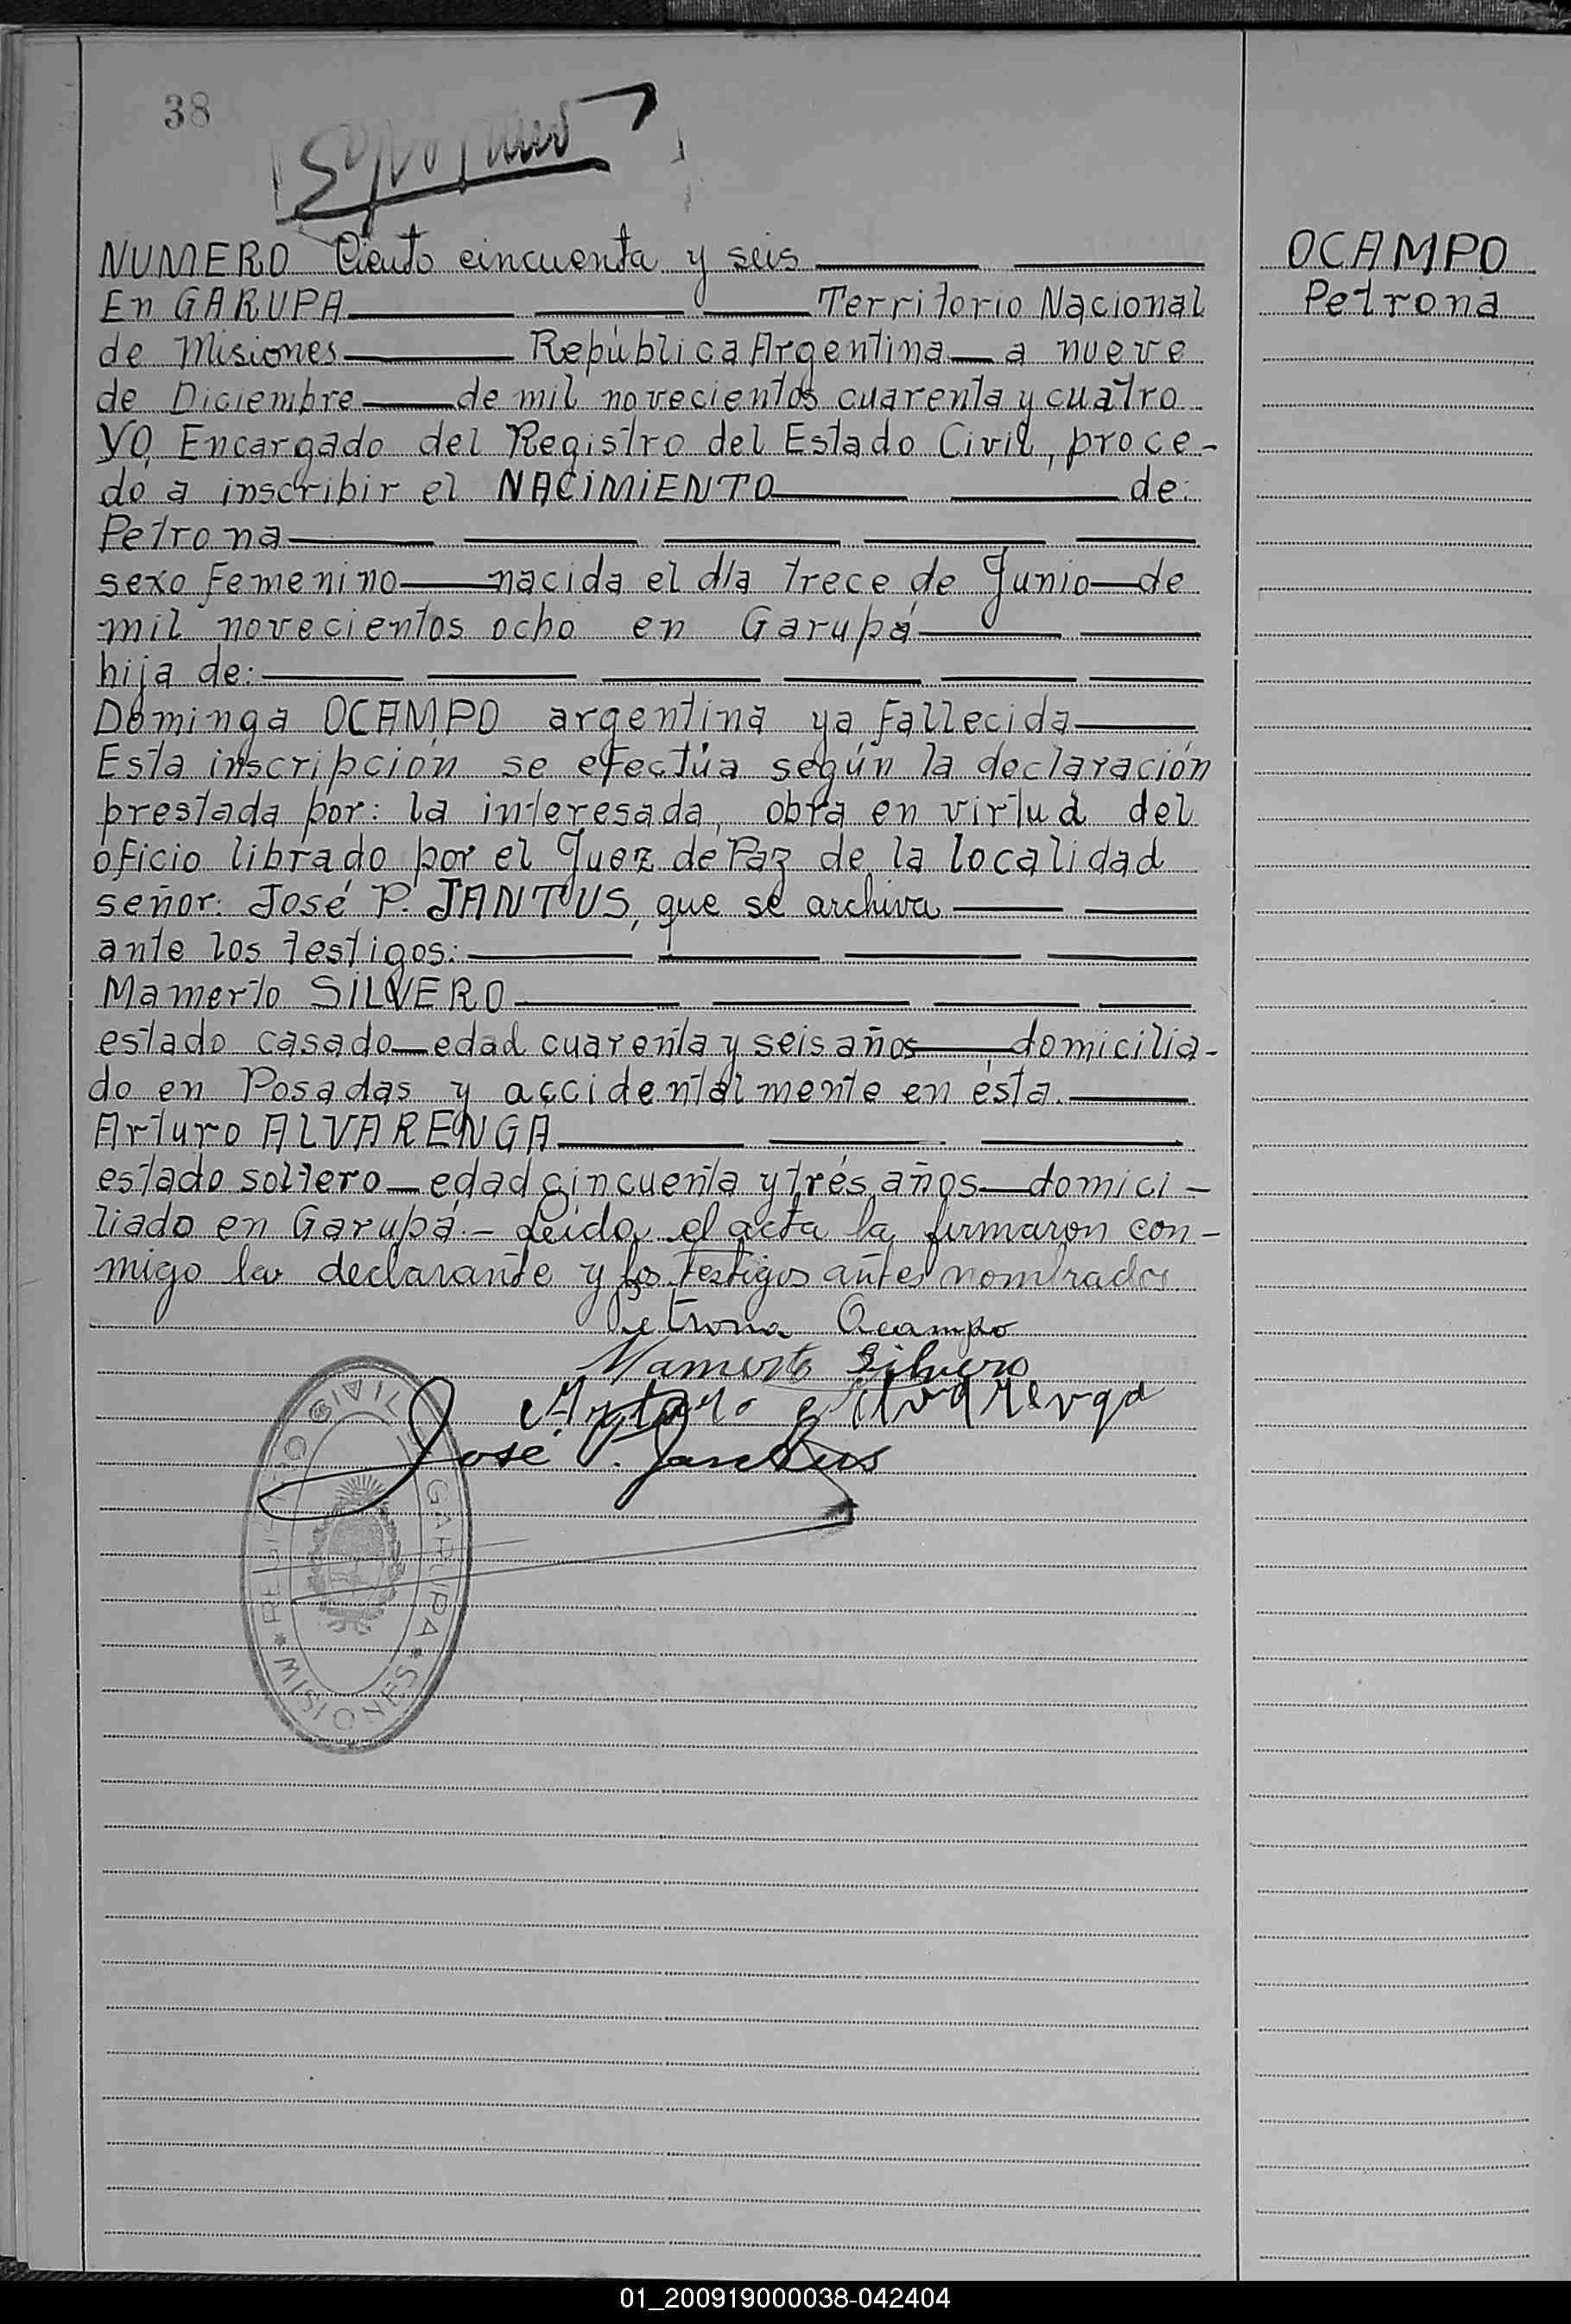 38
NUMERO Ciento cincuenta y seis
OCAMPO
En GARUPA Territorio Nacional
Petrona
de Misiones República Argentina a nueve
de Diciembre de mil novecientos cuarenta y cuatro
YO, Encargado del Registro del Estado Civil, proce-
do a inscribir el NACIMIENTO de:
Petrona
sexo Femenino nacida el día trece de Junio de
mil novecientos ocho en Garupá
hija de:
Dominga OCAMPO argentina ya fallecida
Esta inscripción se efectúa según la declaración
prestada por: la interesada, obra en virtud del
oficio librado por el Juez de Paz de la localidad
señor: José P. JANTUS, que se archiva
ante los testigos:
Mamerto SILVERO
estado casado edad cuarenta y seis años domicilia-
do en Posadas y accidentalmente en ésta.
Arturo ALVARENGA
estado soltero edad cincuenta y trés años domici-
liado en Garupá.- Leida el acta la firmaron con-
migo la declarante y los testigos antes nombrados
Petrona Ocampo
Mamerto Silvero
Arturo Alvarenga
José P. Jantus
REGISTRO CIVIL GARUPA * MISIONES *
01_200919000038-042404